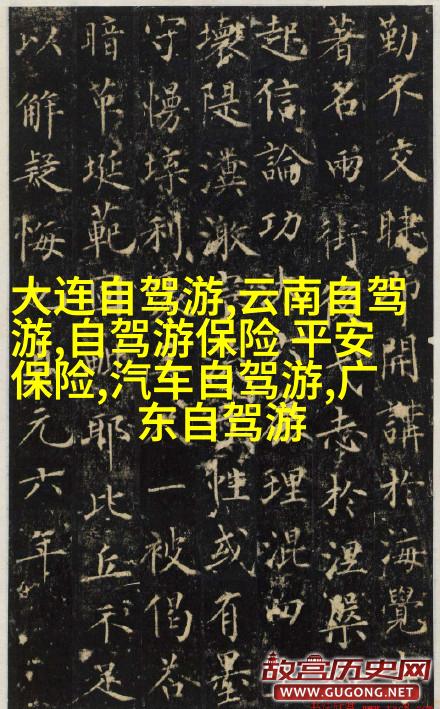 勤不交睫開講於海覺
著名兩街志於涅槃
起信論功理混四
壞隄性或有墨
守慢利一被偈若
暗範耶此丘不足
以解疑悔元六年
大连自驾游,云南自驾
游,自驾游保险 平安
保险,汽车自驾游,广
东自驾游
故宫历史网
WWW.GUGONG.NET